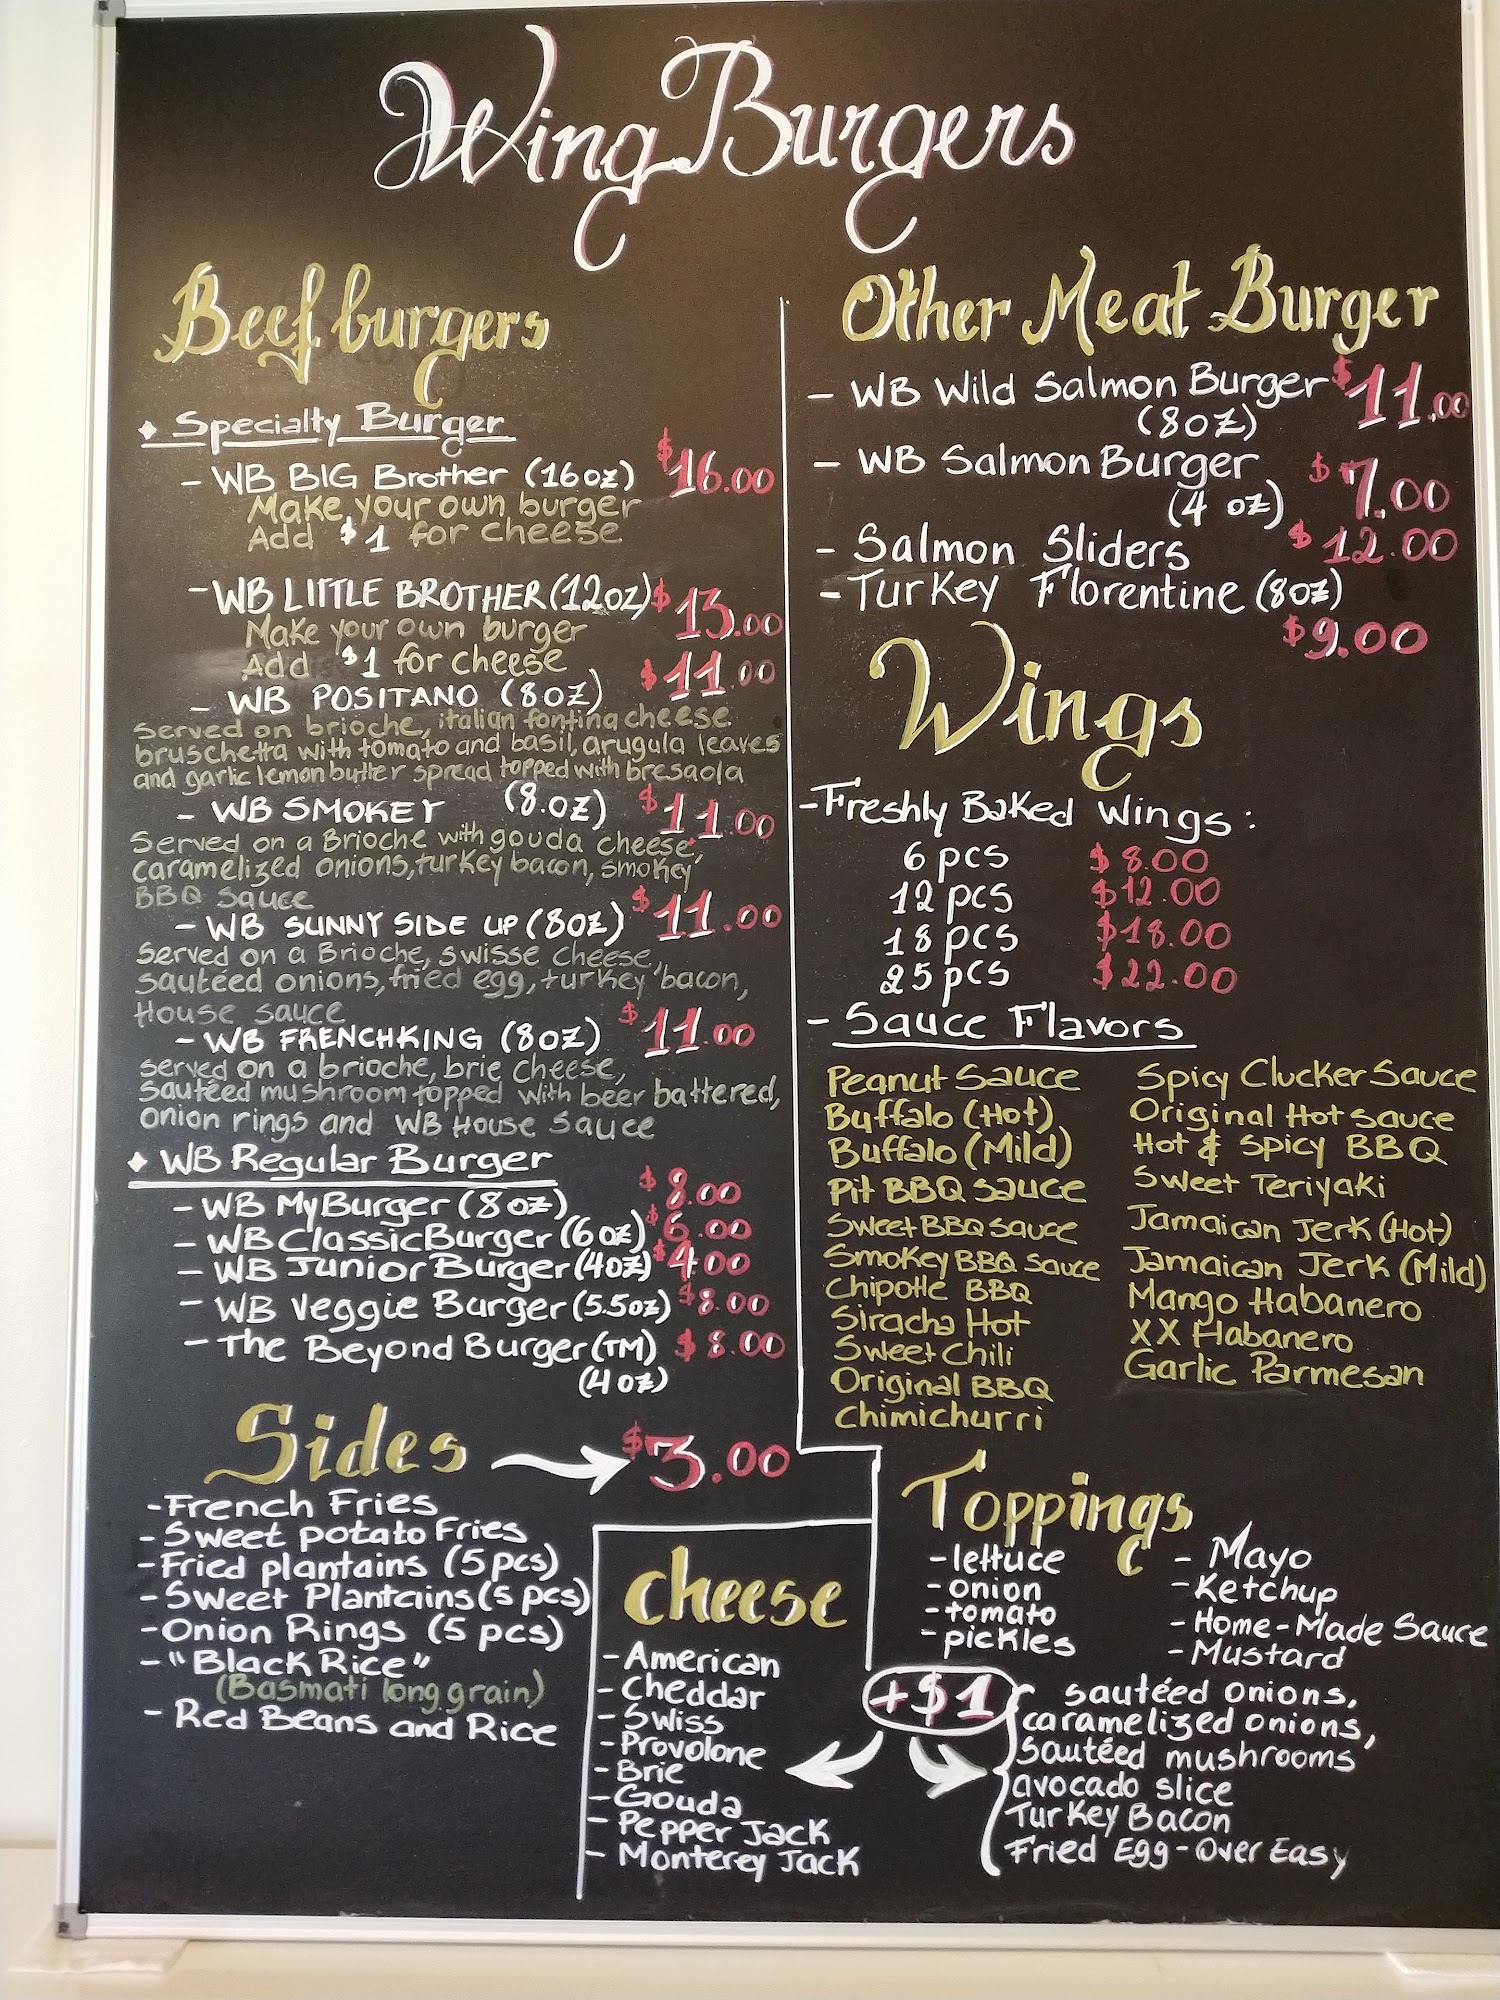 Wing Burgers
Beef burgers
Specialty Burger
- WB BIG Brother (16oz) $16.00
Make your own burger
Add $1 for cheese
- WB LITTLE BROTHER (12oz) $13.00
Make your own burger
Add $1 for cheese
- WB POSITANO (8oz) $11.00
Served on brioche, italian fontina cheese
bruschetta with tomato and basil, arugula leaves
and garlic lemon butter spread topped with bresaola
- WB SMOKEY (8.oz) $11.00
Served on a Brioche with gouda cheese,
caramelized onions, turkey bacon, smokey
BBQ sauce
- WB SUNNY SIDE UP (8oz) $11.00
Served on a Brioche, swisse cheese,
sautéed onions, fried egg, turkey bacon,
House sauce
- WB FRENCHKING (8oz) $11.00
served on a brioche, brie cheese,
sautéed mushroom topped with beer battered,
onion rings and WB House Sauce
WB Regular Burger
- WB MyBurger (8oz) $8.00
- WB Classic Burger (6oz) $6.00
- WB Junior Burger (4oz) $4.00
- WB Veggie Burger (5.5oz) $8.00
- The Beyond Burger (TM) $8.00
(4oz)
Sides $3.00
- French Fries
- Sweet potato Fries
- Fried plantains (5pcs)
- Sweet Plantains (5 pcs)
- Onion Rings (5 pcs)
- "Black Rice"
(Basmati long grain)
- Red Beans and Rice
Other Meat Burger
- WB Wild Salmon Burger $11.00
(8oz)
- WB Salmon Burger $7.00
(4 oz)
- Salmon Sliders $12.00
- Turkey Florentine (8oz)
$9.00
Wings
- Freshly Baked Wings:
6 pcs $8.00
12 pcs $12.00
18 pcs $18.00
25 pcs $22.00
- Sauce Flavors
Peanut Sauce
Buffalo (Hot)
Buffalo (Mild)
Pit BBQ sauce
Sweet BBQ sauce
Smokey BBQ sauce
Chipotle BBQ
Siracha Hot
Sweet Chili
Original BBQ
Chimichurri
Spicy Clucker Sauce
Original Hot sauce
Hot & Spicy BBQ
Sweet Teriyaki
Jamaican Jerk (Hot)
Jamaican Jerk (Mild)
Mango Habanero
XX Habanero
Garlic Parmesan
Cheese
- American
- Cheddar
- Swiss
- Provolone
- Brie
- Gouda
- Pepper Jack
- Monterey Jack
Toppings
- lettuce
- onion
- tomato
- pickles
- Mayo
- Ketchup
- Home-Made Sauce
- Mustard
+$1
sautéed onions,
caramelized onions,
sautéed mushrooms
avocado slice
Turkey Bacon
Fried Egg - Over Easy